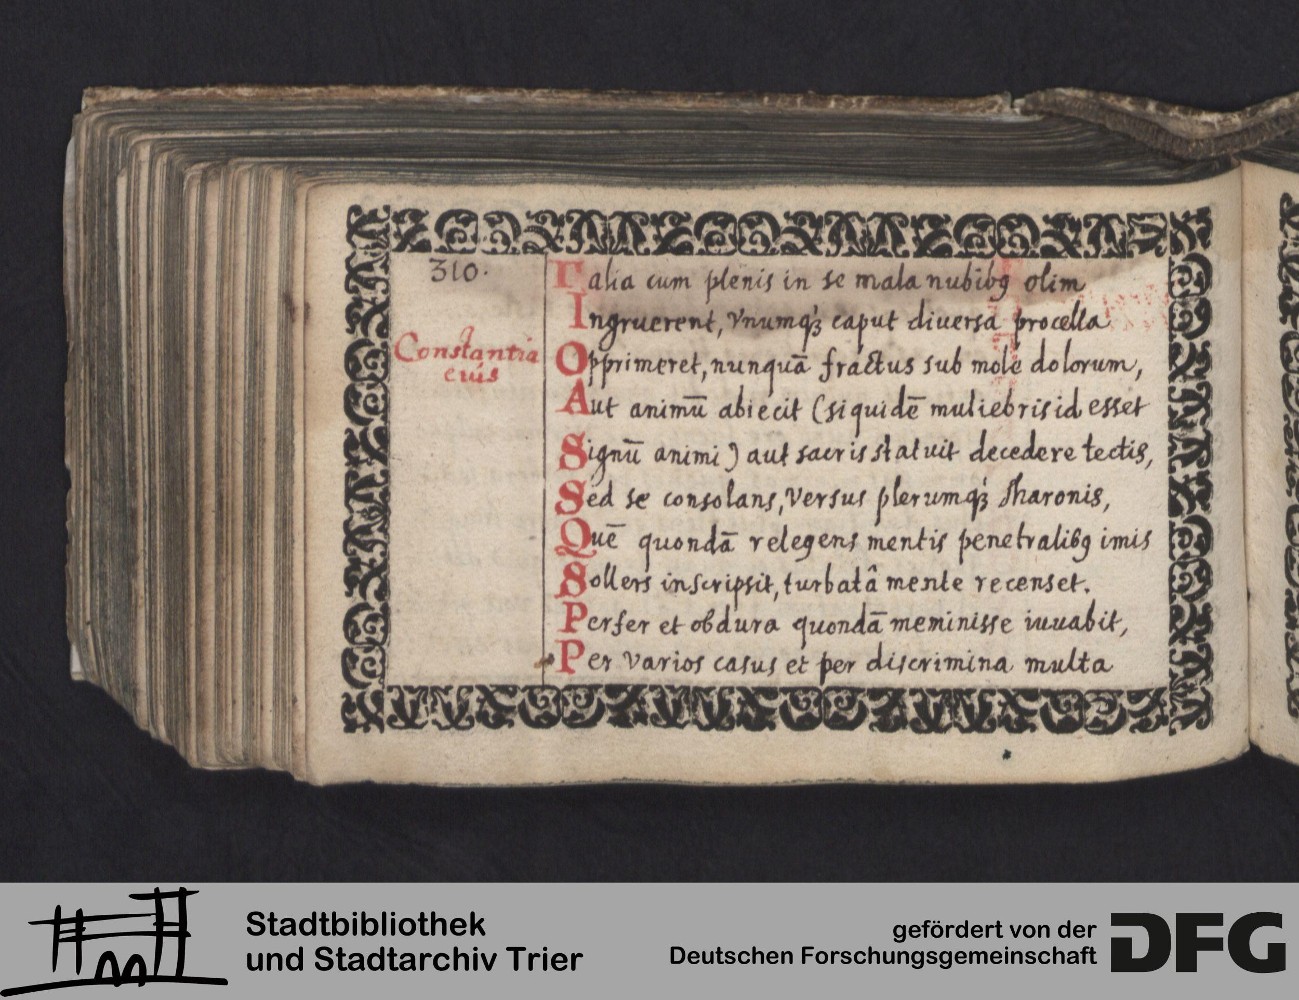 310.
Constantia
eius
Talia cum plenis in se mala nubibꝫ olim
Ingruerent, vnumqꝫ caput diuersa procella
Opprimeret, nunquā fractus sub mole dolorum,
Aut animū abiecit (siquidē muliebris id esset
Signū animi) aut sacris statuit decedere tectis,
Sed se consolans, versus plerumqꝫ Sharonis,
Quē quondā relegens mentis penetralibꝫ imis
Sollers inscripsit, turbatâ mente recenset.
Perfer et obdura quondā meminisse iuuabit,
Per varios casus et per discrimina multa
Stadtbibliothek
und Stadtarchiv Trier
gefördert von der
Deutschen Forschungsgemeinschaft
DFG